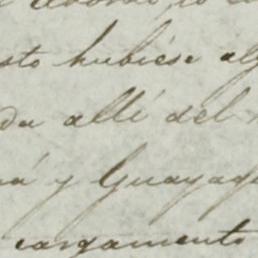 sto hubiese alg
da allí del
á y Guayaq
cargamento